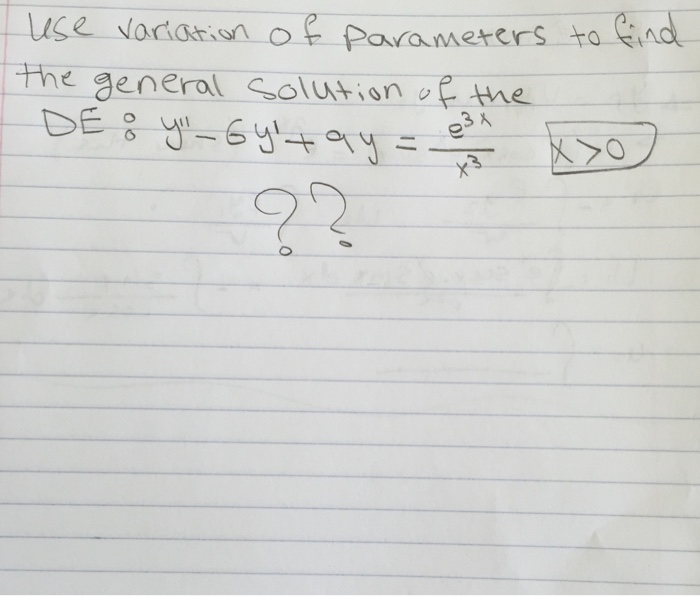 Use variation of parameters to find
the general solution of the
DE : y'' - 6y' + 9y = e^3x / x^3   x > 0
??